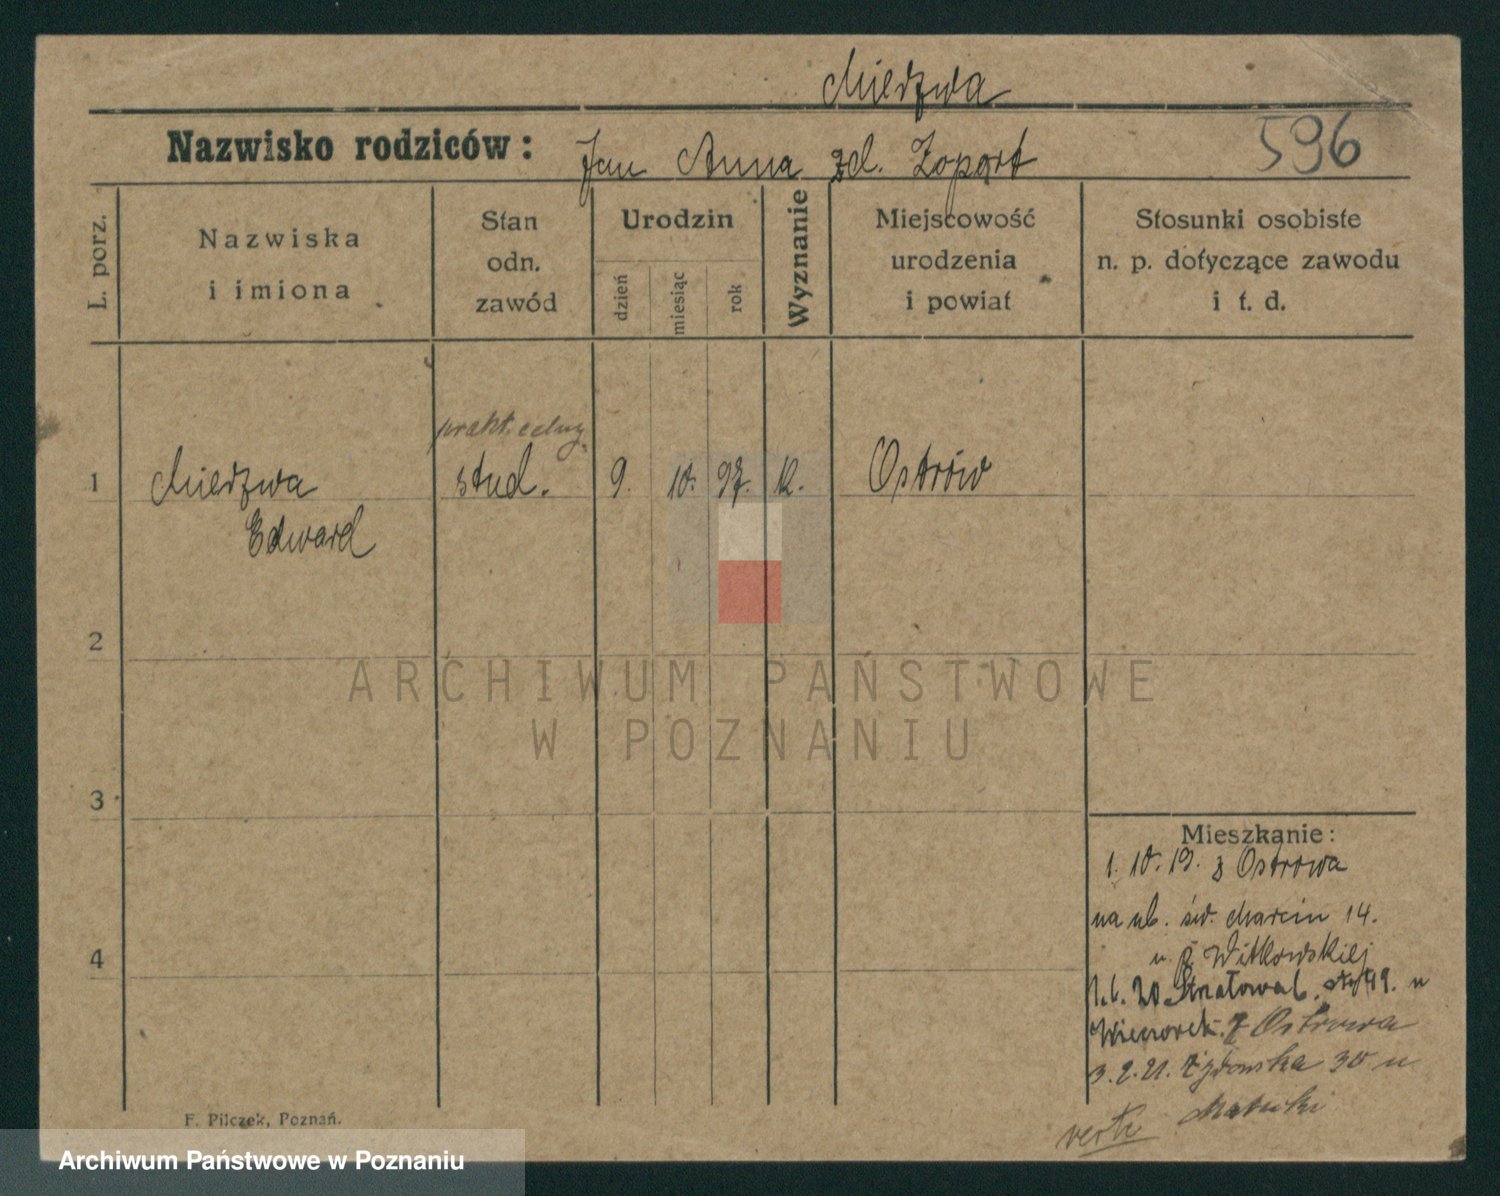 Mierzwa
Nazwisko rodziców: Jan Anna zd. Zopart
596
L. porz.
Nazwiska
i imiona
Stan
odn.
zawód
Urodzin
dzień
miesiąc
rok
Wyznanie
Miejscowość
urodzenia
i powiat
Stosunki osobiste
n. p. dotyczące zawodu
i t. d.
prakt. celny
1 Mierzwa stud. 9. 10. 97. K. Ostrów
Edward
2
3
4
ARCHIWUM PAŃSTWOWE
W POZNANIU
Mieszkanie:
1. 10. 19. z Ostrowa
na ul. św. Marcin 14.
u. Witkowskiej
20 49. u
z Ostrowa
3. 2. 21. 30 u
F. Pilczek, Poznań.
Archiwum Państwowe w Poznaniu